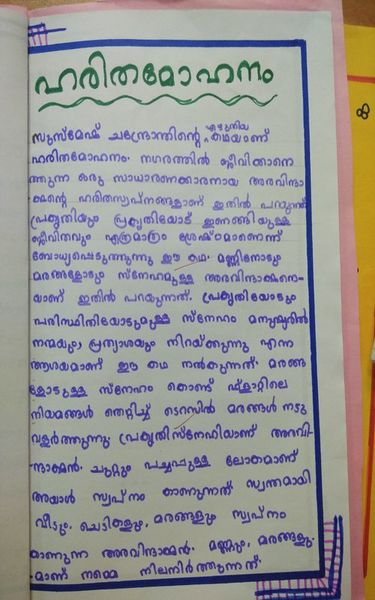 ഹരിതമോഹനം
എഴുതിയ
സുസ്മേഷ് ചന്ദ്രോത്തിന്റെ കഥയാണ്
ഹരിതമോഹനം. നഗരത്തിൽ ജീവിക്കാനെ
ത്തുന്ന ഒരു സാധാരണക്കാരനായ അരവിന്ദാ
ക്ഷന്റെ ഹരിതസ്വപ്നങ്ങളാണ് ഇതിൽ പറയുന്നത്
പ്രകൃതിയും പ്രകൃതിയോട് ഇണങ്ങിയുള്ള
ജീവിതവും എത്രമാത്രം ശ്രേഷ്ഠമാണെന്ന്
ബോധ്യപ്പെടുത്തുന്നു ഈ കഥ. മണ്ണിനോടും
മരങ്ങളോടും സ്നേഹമുള്ള അരവിന്ദാക്ഷനെ-
യാണ് ഇതിൽ പറയുന്നത്. പ്രകൃതിയോടും
പരിസ്ഥിതിയോടുമുള്ള സ്നേഹം മനുഷ്യരിൽ
നന്മയും, പ്രത്യാശയും നിറയ്ക്കുന്നു എന്ന
ആശയമാണ് ഈ കഥ നൽകുന്നത്. മരങ്ങ
ളോടുള്ള സ്നേഹം കൊണ്ട് ഫ്ളാറ്റിലെ
നിയമങ്ങൾ തെറ്റിച്ച് ടെറസിൽ മരങ്ങൾ നട്ടു
വളർത്തുന്നു. പ്രകൃതിസ്നേഹിയാണ് അരവി-
ന്ദാക്ഷൻ. ചുറ്റും പച്ചപ്പുള്ള ലോകമാണ്
അയാൾ സ്വപ്നം കാണുന്നത് സ്വന്തമായി
വീടും, ചെടികളും, മരങ്ങളും സ്വപ്നം
കാണുന്ന അരവിന്ദാക്ഷൻ. മണ്ണും, മരങ്ങളു-
മാണ് നമ്മെ നിലനിർത്തുന്നത്.